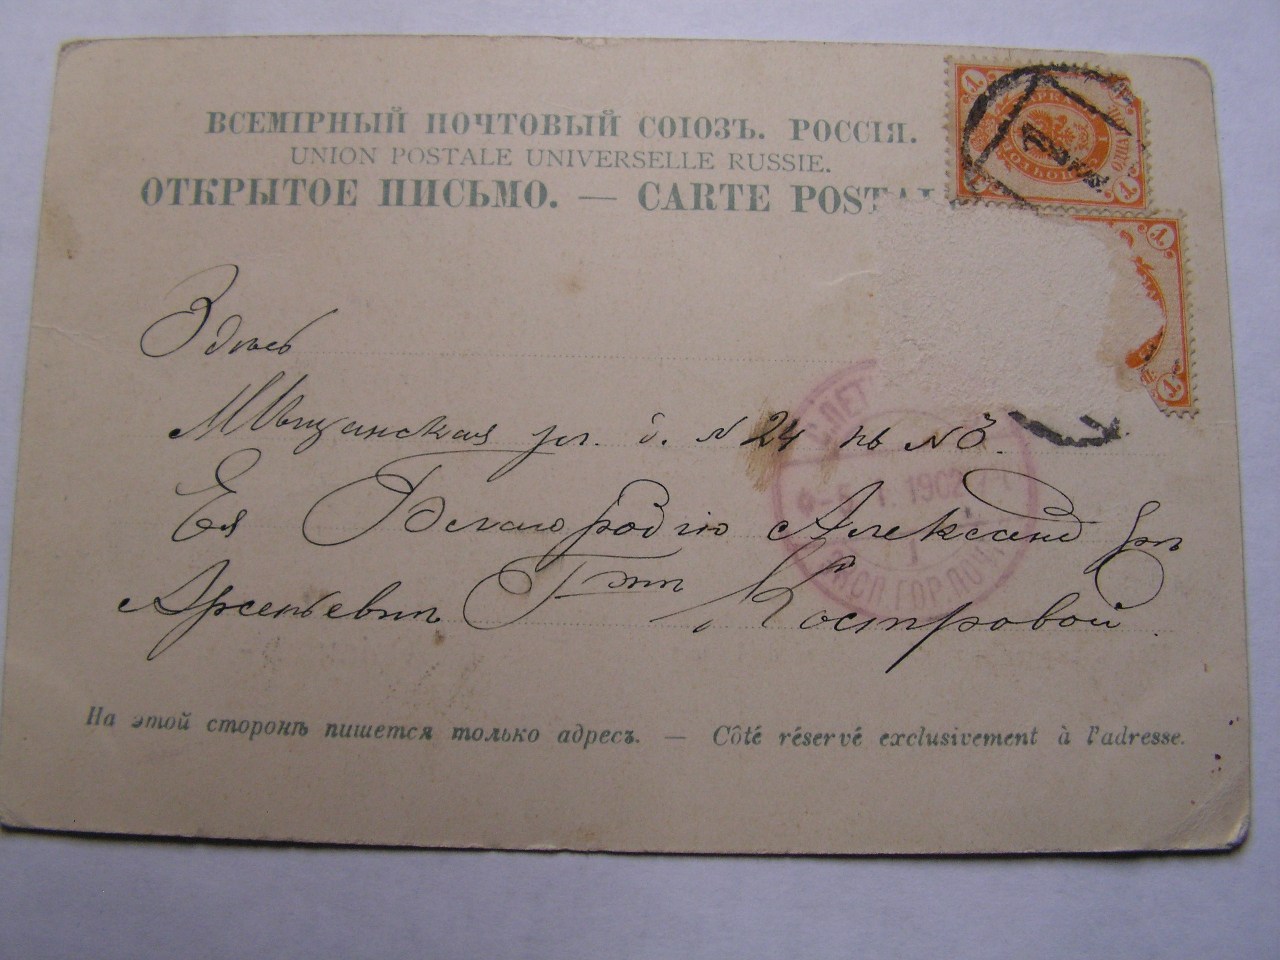 ВСЕМІРНЫЙ ПОЧТОВЫЙ СОЮЗЪ. РОССІЯ.
UNION POSTALE UNIVERSELLE RUSSIE.
ОТКРЫТОЕ ПИСЬМО. — CARTE POSTAL
Здѣсь
Мѣщанская ул. д. № 24 кв №
Ея Благородію Александрѣ
Арсеньевнѣ Г-жѣ Костровой
1902
ГОР.ПОЧ
На этой сторонѣ пишется только адресъ. — Côté réservé exclusivement à l'adresse.